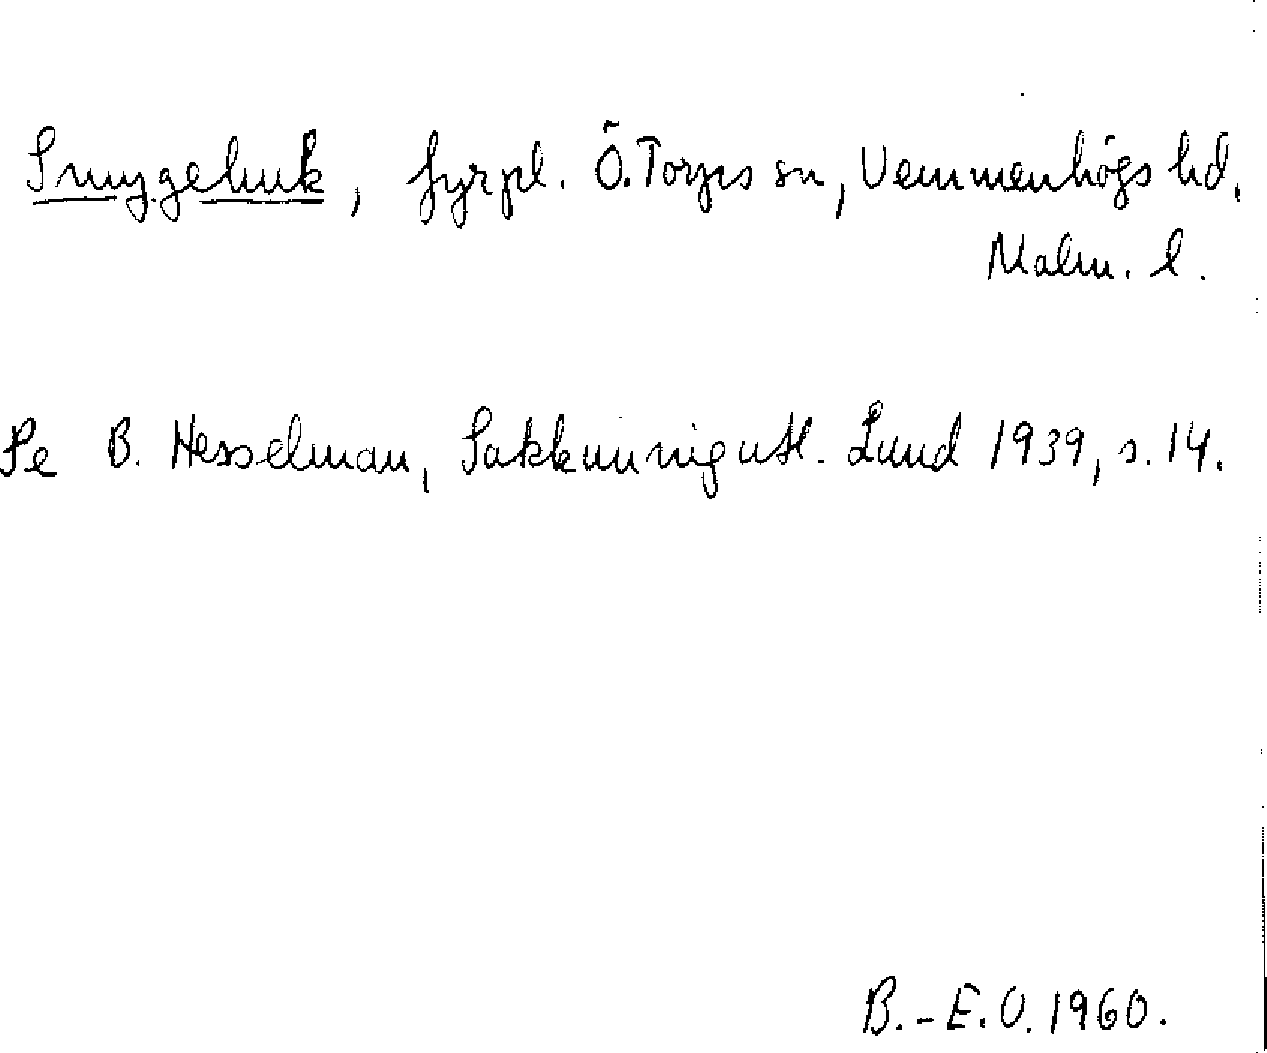 Smygehuk, fyrpl. Ö. Torps sn, Vemmenhögs hd.
Malm. l.
Se B. Hesselman, Sakkunnigutl. Lund 1939, s. 14.
B.-E.O. 1960.